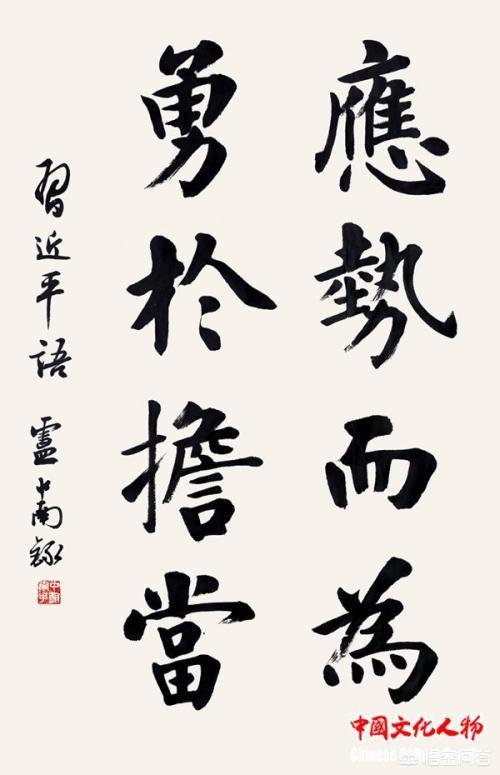 應勢而為
勇於擔當
習近平語 盧中南錄
中國文化人物